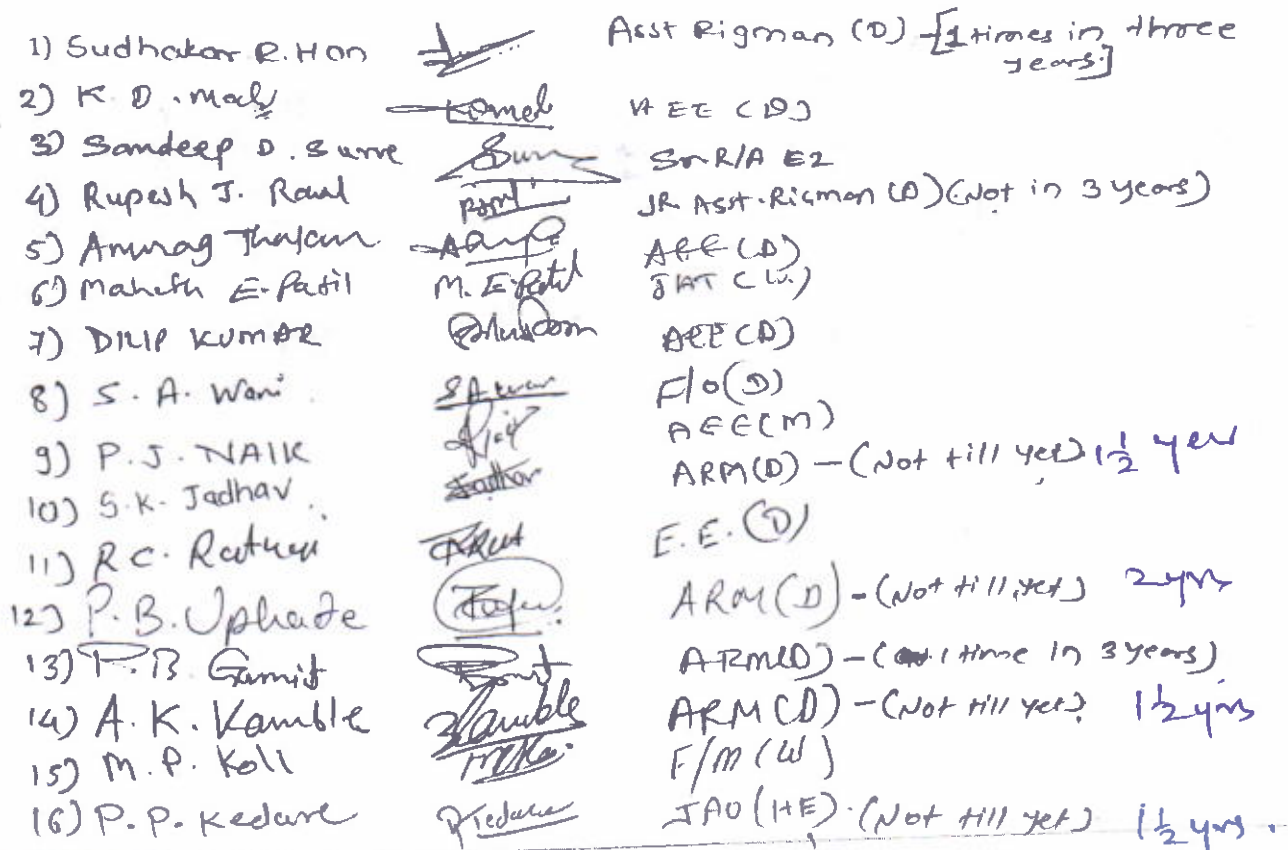 1) Sudhakar R. Hon Asst Rigman (D) - [1 times in three years.]
2) K. D. Mali Komal AEE (D)
3) Sandeep D. Surve Surve Sr R/A E2
4) Rupesh J. Raul Raul JR Asst. Rigman (D) (Not in 3 years)
5) Anurag Thakur AEE (D)
6) Mahesh E. Patil M. E. Patil JAT (W)
7) DILIP KUMAR AEE (D)
8) S. A. Wani S A wani F/O (D)
9) P. J. NAIK AEE (M)
10) S. K. Jadhav Jadhav ARM (D) - (Not till yet) 1 1/2 year
11) R C. E. E. (D)
12) P. B. Uphade ARM (D) - (Not till yet) 2 yrs
13) P. B Gamit ARM (D) - (1 time in 3 years)
14) A. K. Kamble Kamble ARM (D) - (Not till yet) 1 1/2 yrs
15) M. P. Koli F/M (W)
16) P. P. Kedare PKedare JAO (HE). (Not till yet) 1 1/2 yrs.